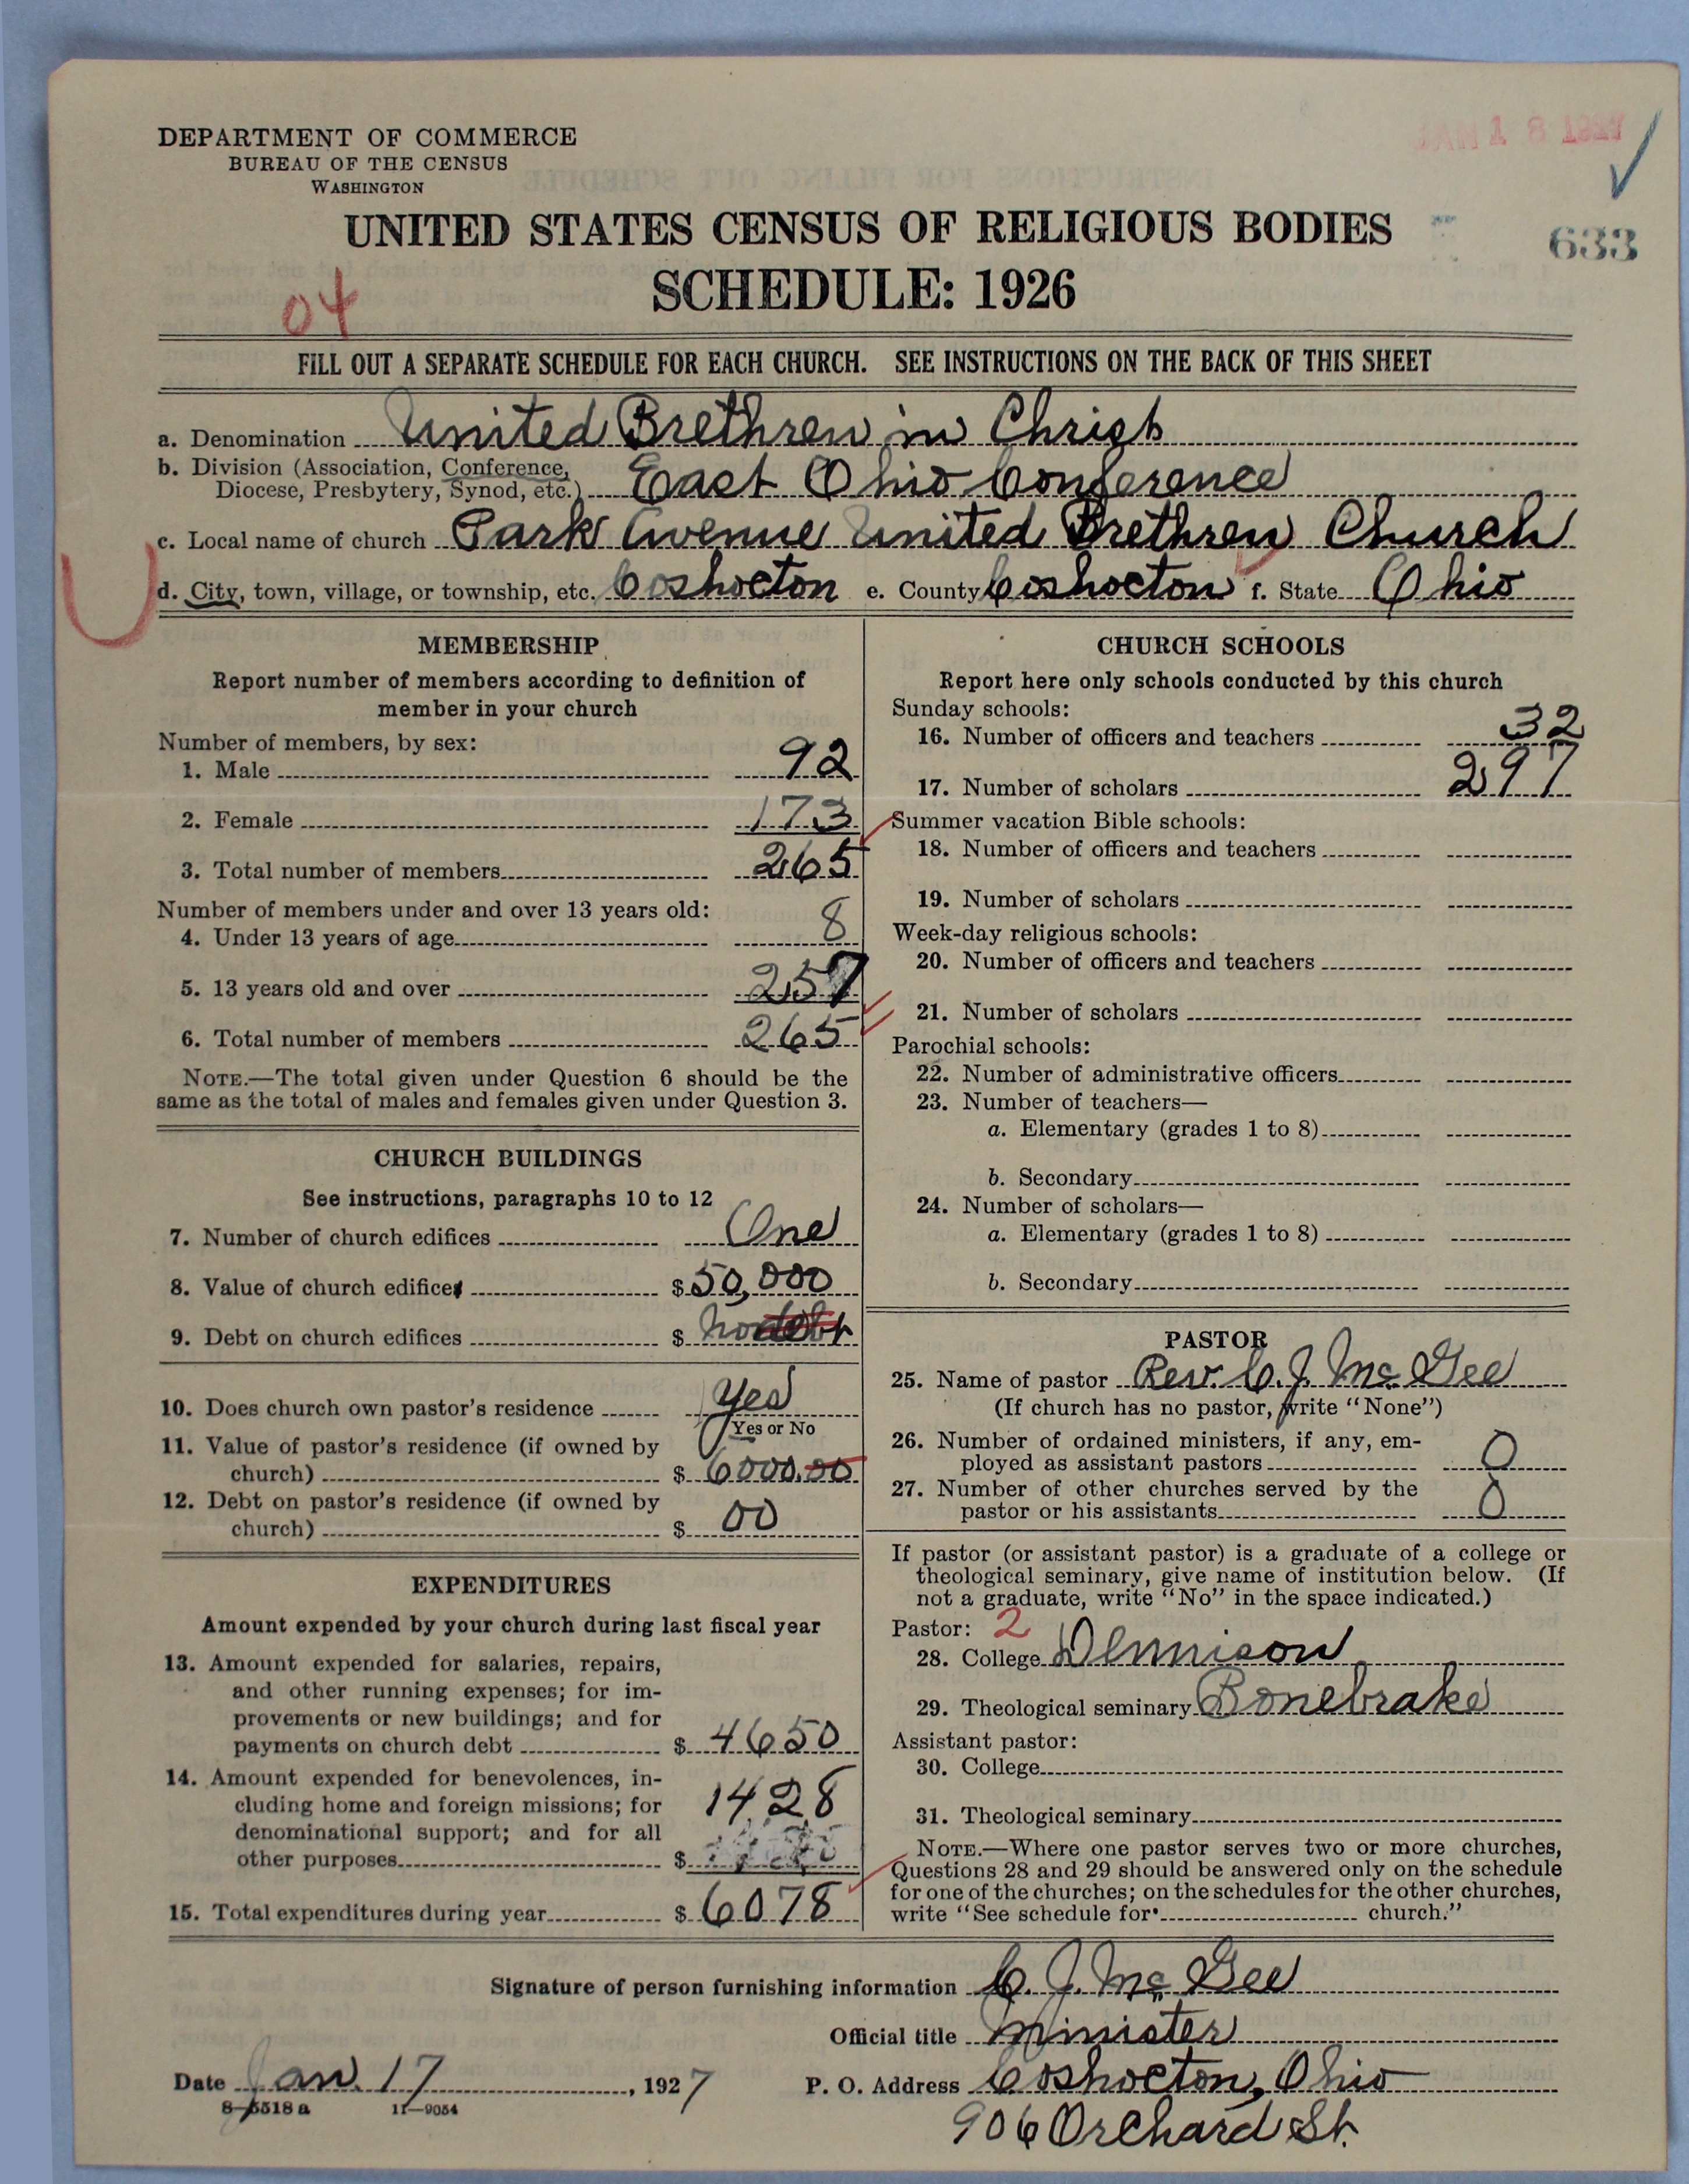 JAN 18 1927
DEPARTMENT OF COMMERCE
BUREAU OF THE CENSUS
WASHINGTON
UNITED STATES CENSUS OF RELIGIOUS BODIES
633
SCHEDULE: 1926
04
FILL OUT A SEPARATE SCHEDULE FOR EACH CHURCH. SEE INSTRUCTIONS ON THE BACK OF THIS SHEET
a. Denomination United Brethren in Christ
b. Division (Association, Conference,
Diocese, Presbytery, Synod, etc.) East Ohio Conference
c. Local name of church Park Avenue United Brethren Church
d. City, town, village, or township, etc. Coshocton e. County Coshocton f. State Ohio
MEMBERSHIP
Report number of members according to definition of
member in your church
Number of members, by sex:
1. Male 92
2. Female 173
3. Total number of members 265
Number of members under and over 13 years old:
4. Under 13 years of age 8
5. 13 years old and over 257
6. Total number of members 265
NOTE.—The total given under Question 6 should be the
same as the total of males and females given under Question 3.
CHURCH BUILDINGS
See instructions, paragraphs 10 to 12
7. Number of church edifices One
8. Value of church edifices $50,000
9. Debt on church edifices $ no debt
10. Does church own pastor's residence Yes
Yes or No
11. Value of pastor's residence (if owned by
church) $ 6000.00
12. Debt on pastor's residence (if owned by
church) $ 00
EXPENDITURES
Amount expended by your church during last fiscal year
13. Amount expended for salaries, repairs,
and other running expenses; for im-
provements or new buildings; and for
payments on church debt $ 4650
14. Amount expended for benevolences, in-
cluding home and foreign missions; for 1428
denominational support; and for all
other purposes $
15. Total expenditures during year $ 6078
CHURCH SCHOOLS
Report here only schools conducted by this church
Sunday schools:
16. Number of officers and teachers 32
17. Number of scholars 297
Summer vacation Bible schools:
18. Number of officers and teachers
19. Number of scholars
Week-day religious schools:
20. Number of officers and teachers
21. Number of scholars
Parochial schools:
22. Number of administrative officers
23. Number of teachers—
a. Elementary (grades 1 to 8)
b. Secondary
24. Number of scholars—
a. Elementary (grades 1 to 8)
b. Secondary
PASTOR
25. Name of pastor Rev. C. J. Mc Gee
(If church has no pastor, write "None")
26. Number of ordained ministers, if any, em-
ployed as assistant pastors 0
27. Number of other churches served by the
pastor or his assistants 0
If pastor (or assistant pastor) is a graduate of a college or
theological seminary, give name of institution below. (If
not a graduate, write "No" in the space indicated.)
Pastor: 2
28. College Dennison
29. Theological seminary Bonebrake
Assistant pastor:
30. College
31. Theological seminary
NOTE.—Where one pastor serves two or more churches,
Questions 28 and 29 should be answered only on the schedule
for one of the churches; on the schedules for the other churches,
write "See schedule for church."
Signature of person furnishing information C. J. Mc Gee
Official title Minister
Date Jan. 17, 1927 P. O. Address Coshocton, Ohio
8-5518a 11—9054
906 Orchard St.